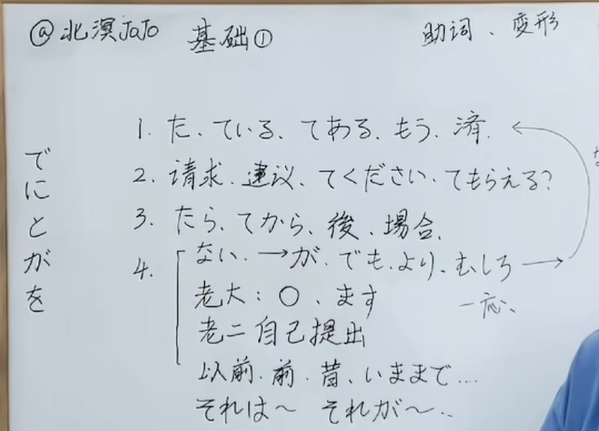 @北溟JoJo 基础① 助词、变形
でにとがを
1. た、ている、てある、もう、済 ←
2. 请求、建议、てください、てもらえる?
3. たら、てから、後、場合、
4. ない、→が、でも、より、むしろ →
老大:○、ます 一応、
老二自己提出
以前、前、昔、いままで...
それは～ それが～..